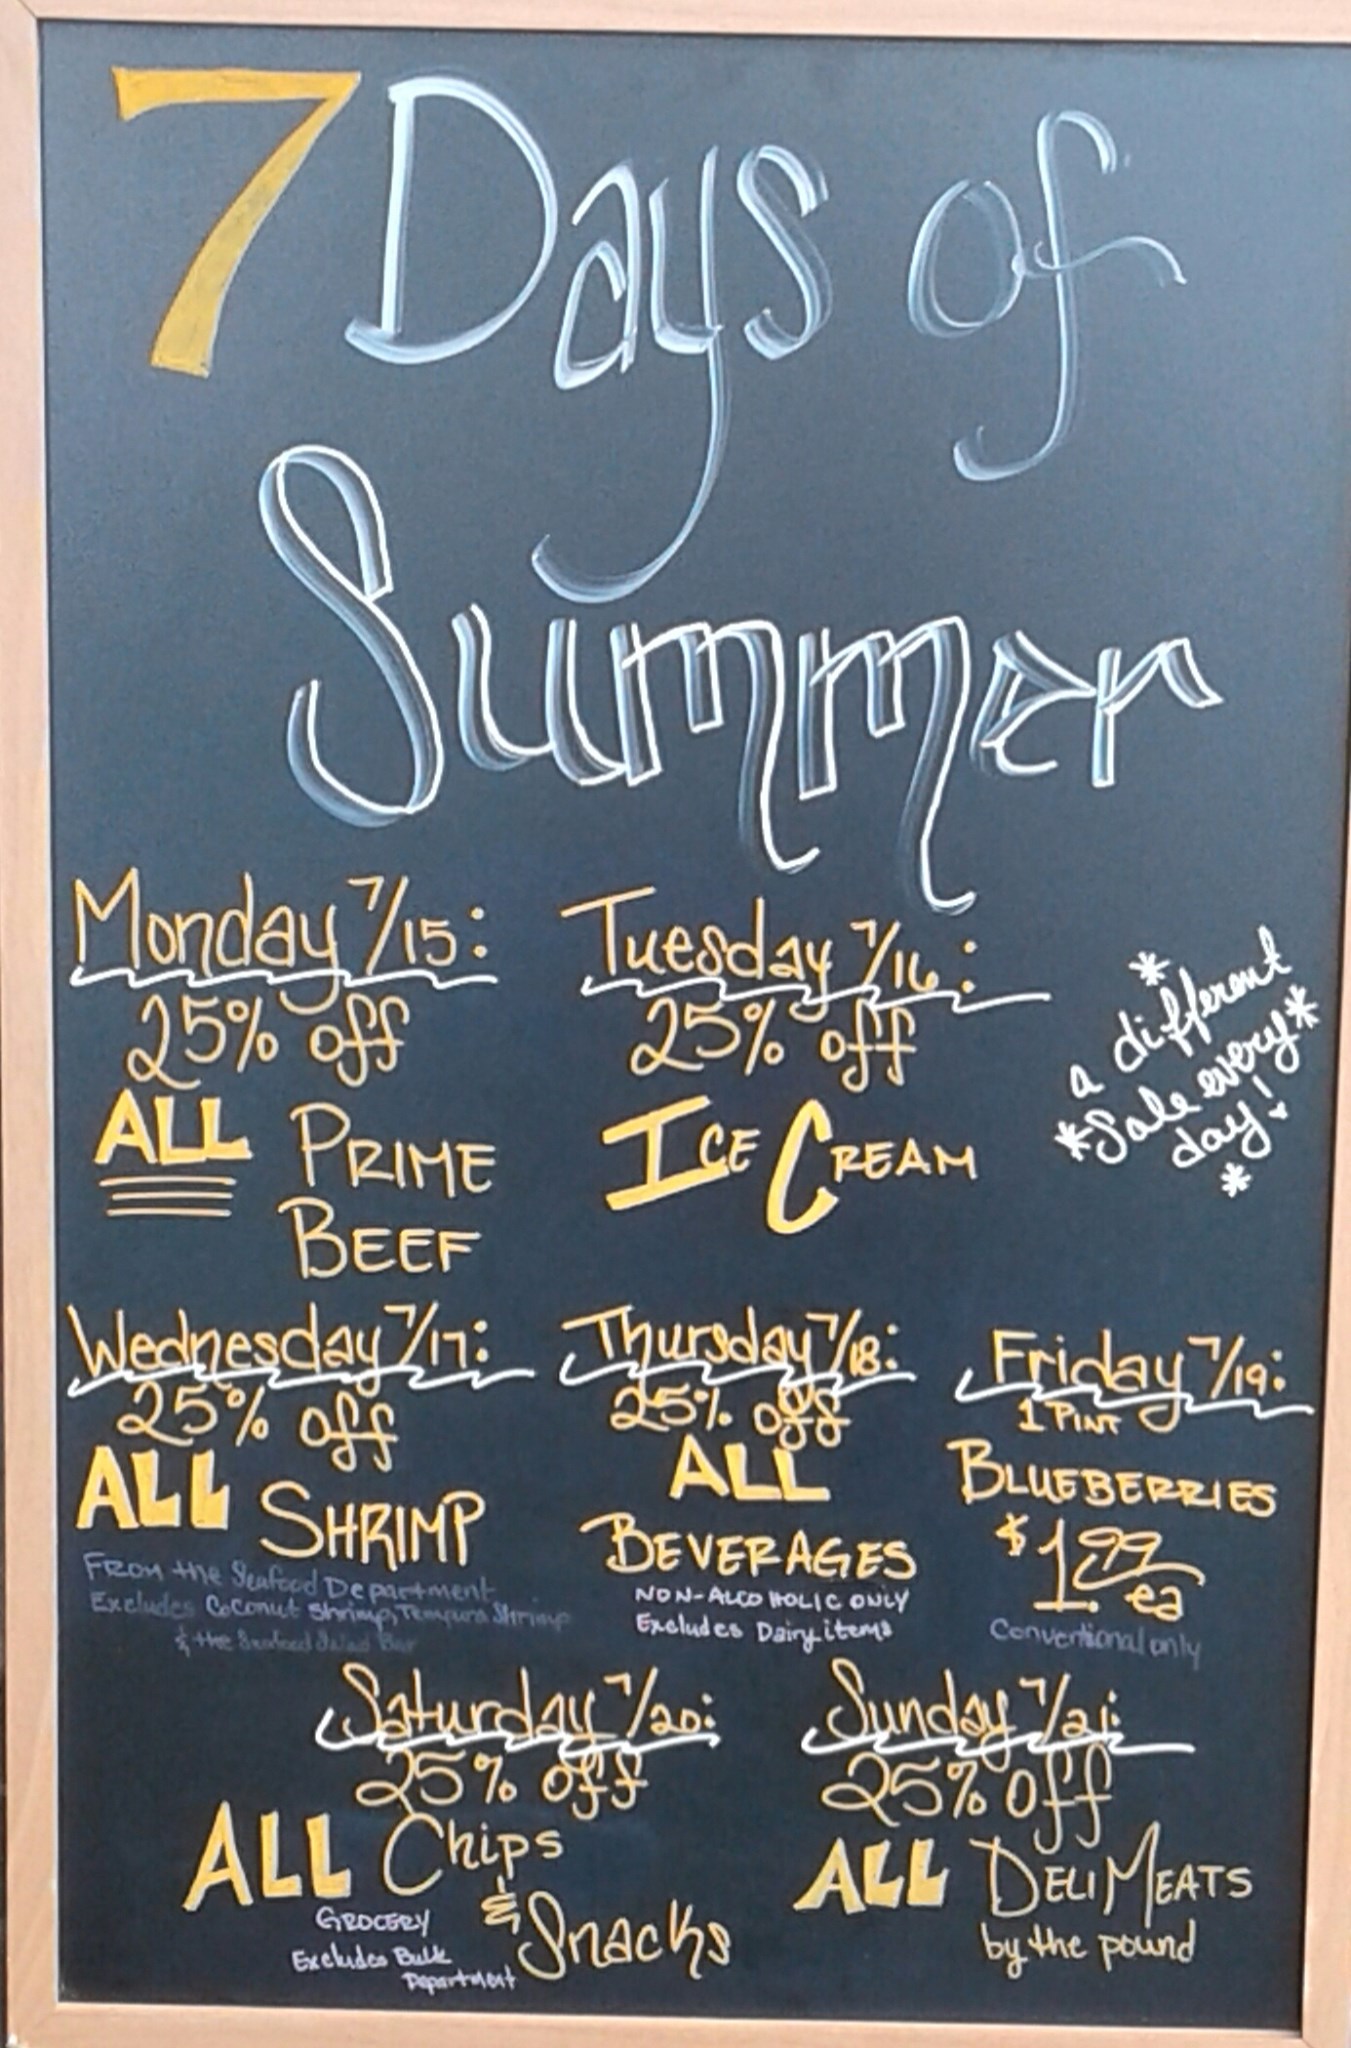 7 Days of
Summer
Monday 7/15:
25% off
ALL PRIME
BEEF
Tuesday 7/16:
25% off
ICE CREAM
*
a different
*Sale every*
day!
*
Wednesday 7/17:
25% off
ALL SHRIMP
FROM the Seafood Department
Excludes Coconut Shrimp, Tempura Shrimp
& the Seafood Salad Bar
Thursday 7/18:
25% off
ALL
BEVERAGES
NON-ALCOHOLIC ONLY
Excludes Dairy items
Friday 7/19:
1 PINT
BLUEBERRIES
$1.99
ea
Conventional only
Saturday 7/20:
25% off
ALL Chips
& Snacks
GROCERY
Excludes Bulk
Department
Sunday 7/21:
25% off
ALL DELI MEATS
by the pound